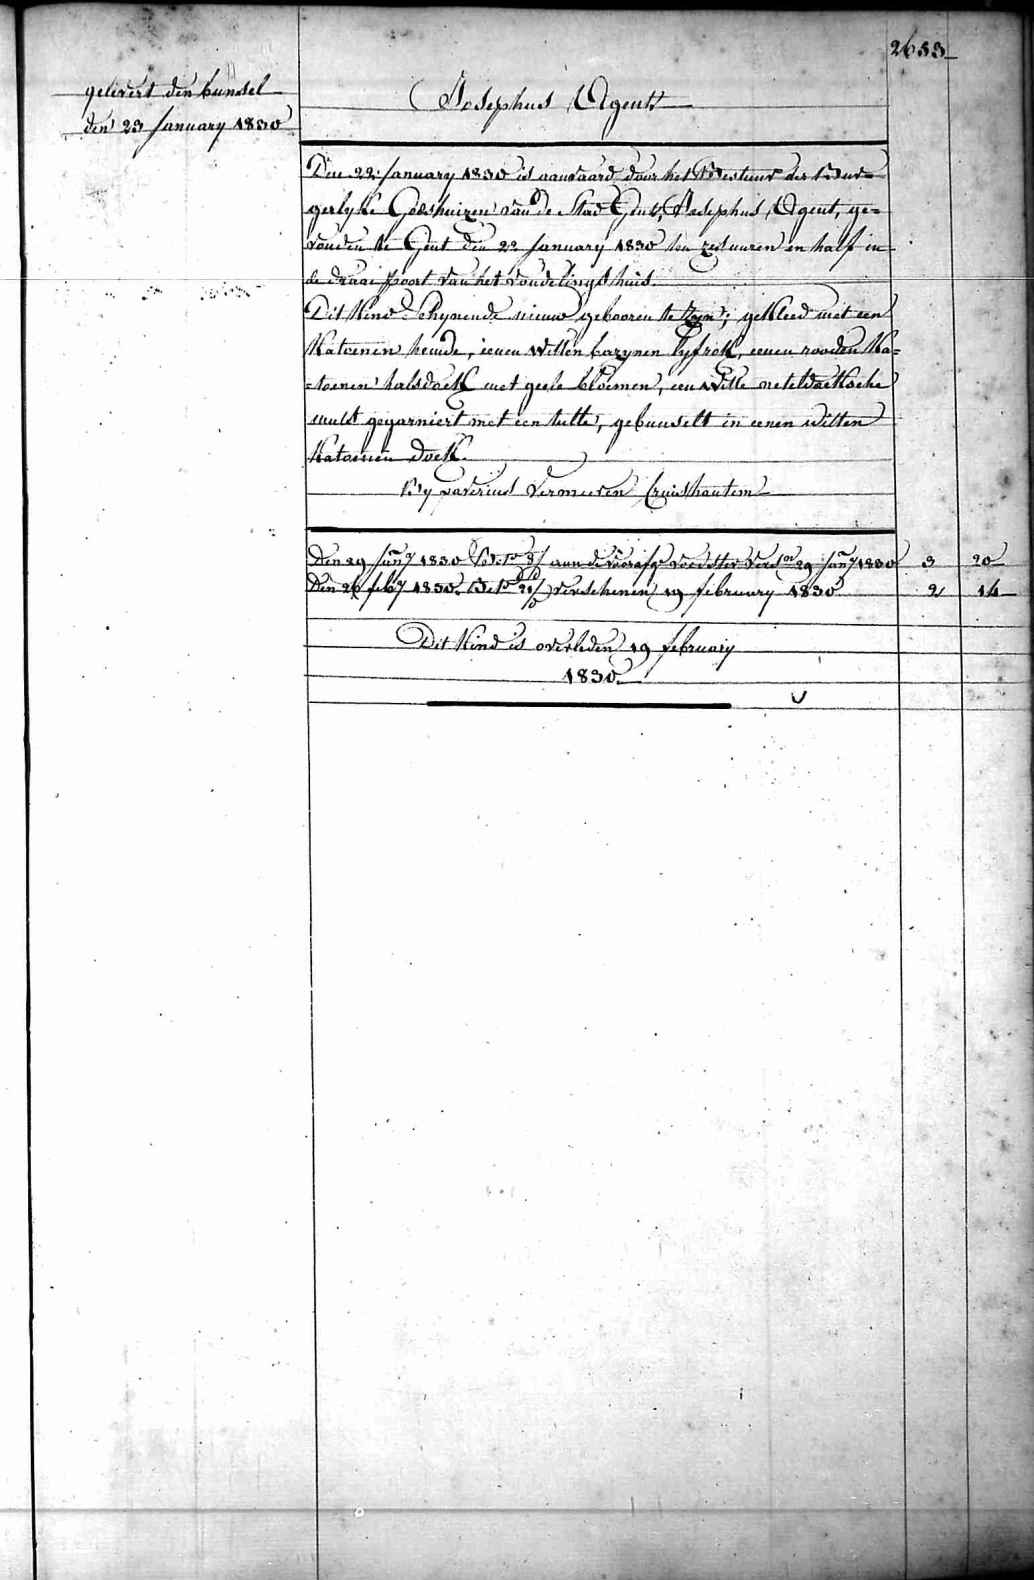 2633
gelevert den bunssel
den 23 January 1830
Josephus Agent
Den 22 January 1830 is aanvaard door het Bestuur der Bur=
gerlyke Godshuizen van de Stad Gent, Josephus Agent, ge=
vonden te Gent den 22 January 1830 ten zes uuren en half in
de draai poort van het Vondelingshuis.
Dit Kind Schynende nieuw gebooren te zyn; gekleed met een
Katoenen hemde, eenen witten bazynen lyfrok, eenen rooden Ka=
=toenen halsdoek met geele bloemen, een witte neteldoeksche
muts gegarniert met een tulle, gebunselt in eenen witten
Katoenen doek.
By Vermeeren Cruishautem
Den 29 Jany 1830 aan de voedster 29 Jany 1830 3 20
Den 26 feby 1830 verschenen 19 february 1830 2 14
Dit Kind is overleden 19 february
1830.